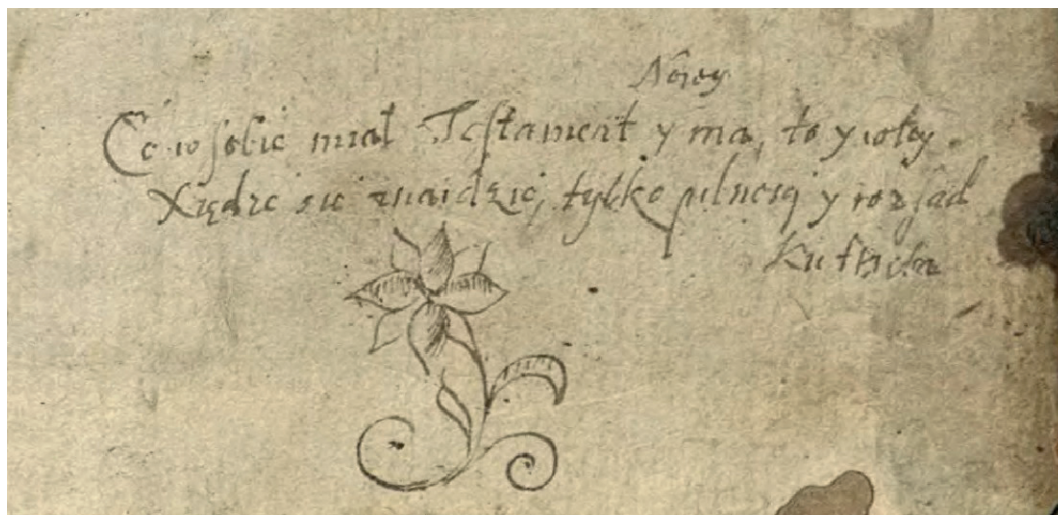 Nowy
Co w sobie miał Testament y ma, to y w tey
Xiędze sie znaidzie, tylko pilnosci y rozsąd
ku